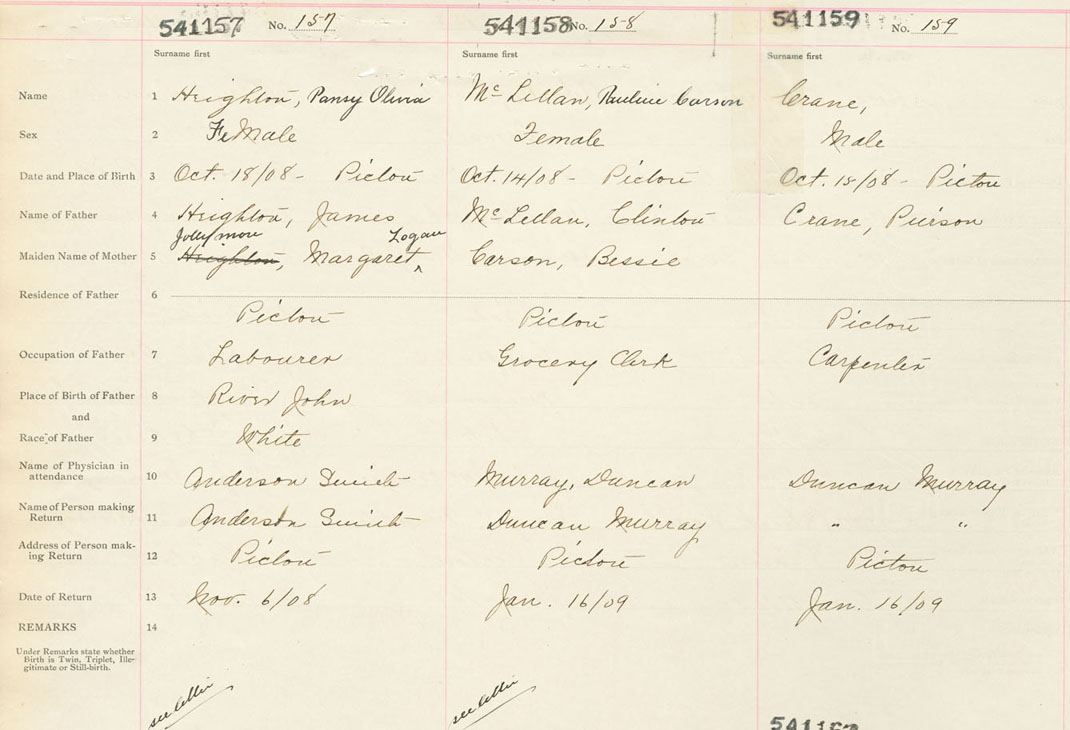 541157 No. 157 541158 No. 158 541159 No. 159
Surname first Surname first Surname first
Name 1 Heighton, Pansy Olivia McLellan, Pauline Carson Crane,
Sex 2 FeMale Female Male
Date and Place of Birth 3 Oct. 18/08 - Pictou Oct. 14/08 - Pictou Oct. 15/08 - Pictou
Name of Father 4 Heighton, James McLellan, Clinton Crane, Pierson
Jollymore Logan
Maiden Name of Mother 5 Heighton, Margaret ^ Carson, Bessie
Residence of Father 6
Pictou Pictou Pictou
Occupation of Father 7 Labourer Grocery Clerk Carpenter
Place of Birth of Father 8 River John
and
Race of Father 9 White
Name of Physician in
attendance 10 Anderson Murray, Duncan Duncan Murray
Name of Person making
Return 11 Anderson Duncan Murray " "
Address of Person mak-
ing Return 12 Pictou Pictou Pictou
Date of Return 13 Nov. 6/08 Jan. 16/09 Jan. 16/09
REMARKS 14
Under Remarks state whether
Birth is Twin, Triplet, Ille-
gitimate or Still-birth.
see letter see letter